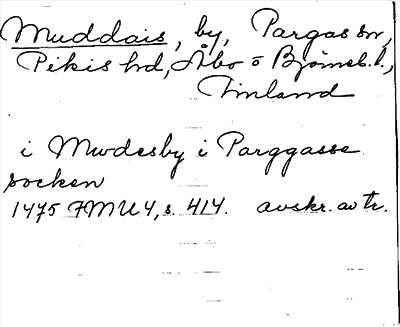 Muddais, by, Pargas sn,
Pikis hd, Åbo o Björneb. l.,
Finland
i Mwdesby i Parggasse
socken
1475 FMU 4, s. 414. avskr. av tr.